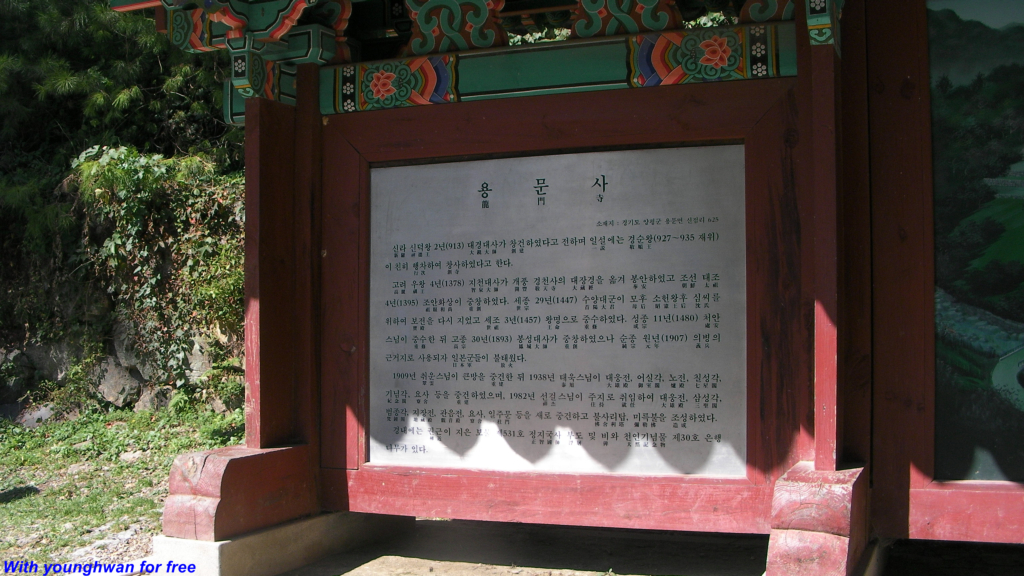 용문사
龍門寺
소재지 : 경기도 양평군 용문면 신점리 625
신라 신덕왕 2년(913) 대경대사가 창건하였다고 전하며 일설에는 경순왕(927~935 재위)
이 친히 행차하여 창사하였다고 한다.
고려 우왕 4년(1378) 지천대사가 개풍 경천사의 대장경을 옮겨 봉안하였고 조선 태조
4년(1395) 조안화상이 중창하였다. 세종 29년(1447) 수양대군이 모후 소헌왕후 심씨를
위하여 보전을 다시 지었고 세조 3년(1457) 왕명으로 중수하였다. 성종 11년(1480) 처안
스님이 중수한 뒤 고종 30년(1893) 봉성대사가 중창하였으나 순종 원년(1907) 의병의
근거지로 사용되자 일본군들이 불태웠다.
1909년 취운스님이 큰방을 중건한 뒤 1938년 태욱스님이 대웅전, 어실각, 노전, 칠성각,
기념각, 요사 등을 중건하였으며, 1982년 선걸스님이 주지로 취임하여 대웅전, 삼성각,
범종각, 지장전, 관음전, 요사, 일주문 등을 새로 중건하고 불사리탑, 미륵불을 조성하였다.
경내에는 권근이 지은 보물 제531호 정지국사 부도 및 비와 천연기념물 제30호 은행
나무가 있다.
With younghwan for free